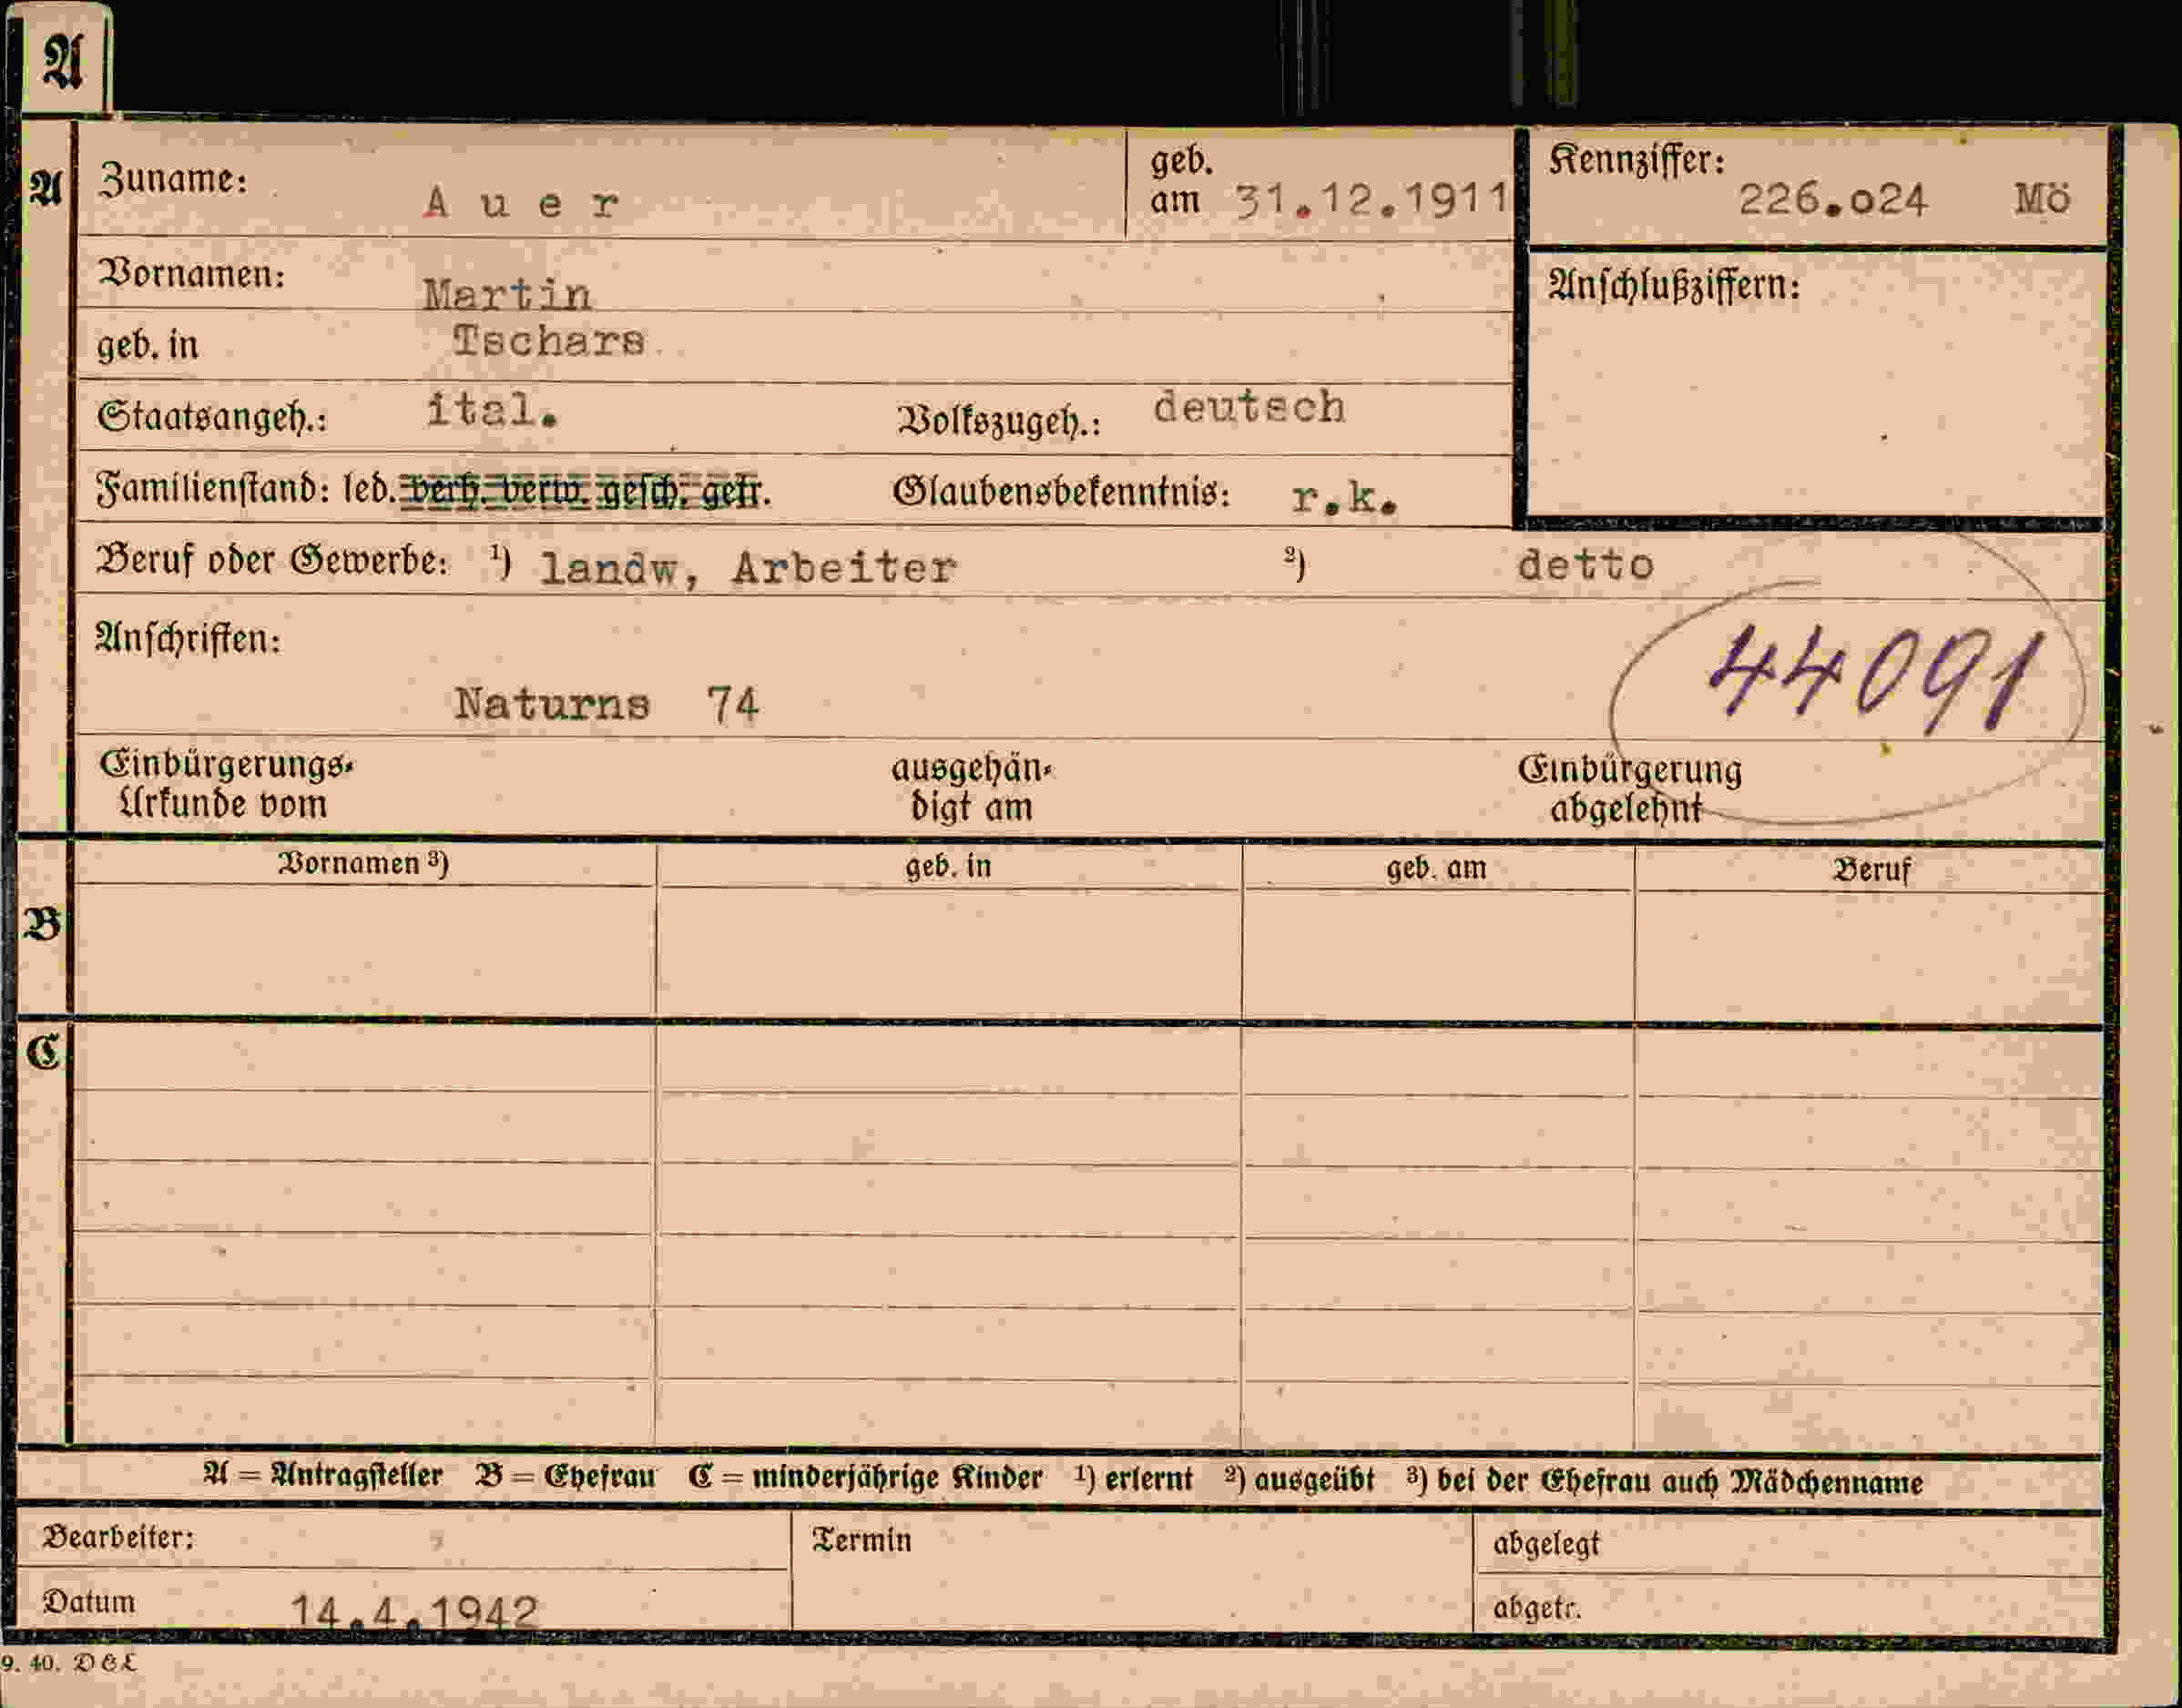 A
A Zuname: A u e r geb. am 31.12.1911 Kennziffer: 226.o24 Mö
Vornamen: Martin Anschlußziffern:
geb. in Tschars
Staatsangeh.: ital. Volkszugeh.: deutsch
Familienstand: led. verh. verw. gesch. getr. Glaubensbekenntnis: r.k.
Beruf oder Gewerbe: ¹) landw, Arbeiter ²) detto
Anschriften:
44091
Naturns 74
Einbürgerungs- ausgehän- Einbürgerung
Urkunde vom digt am abgelehnt
Vornamen ³) geb. in geb. am Beruf
B
C
A = Antragsteller B = Ehefrau C = minderjährige Kinder ¹) erlernt ²) ausgeübt ³) bei der Ehefrau auch Mädchenname
Bearbeiter: Termin abgelegt
Datum 14.4.1942 abgetr.
9. 40. D Ö L